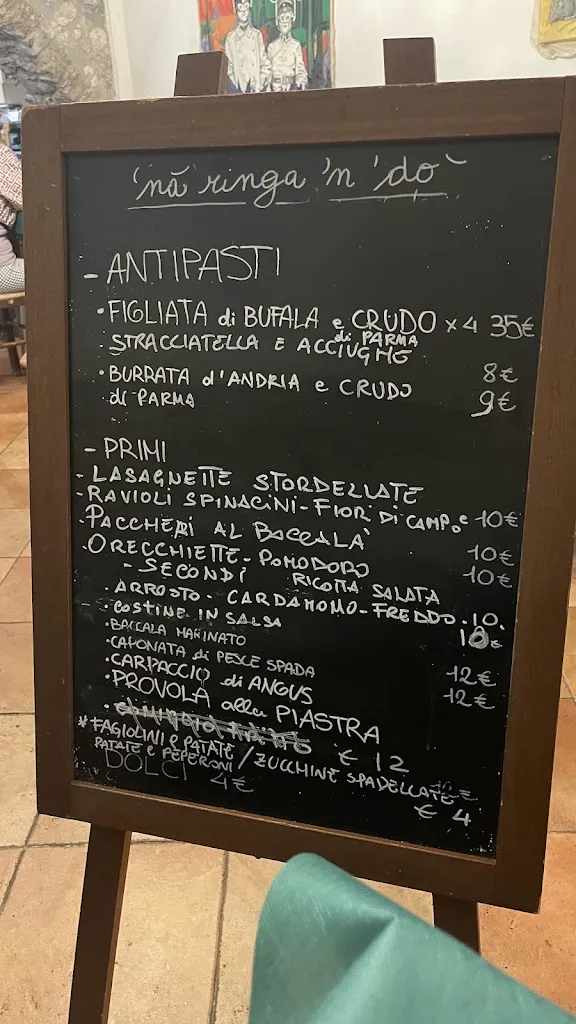 'nā ringa 'n 'do`
- ANTIPASTI
• FIGLIATA di BUFALA e CRUDO x 4 35€
di PARMA
• STRACCIATELLA E ACCIUGHE 8€
• BURRATA d'ANDRIA e CRUDO
di PARMA 9€
- PRIMI
- LASAGNETTE STORDELLATE
- RAVIOLI SPINACINI - FIOR DI CAMPO 10€
• PACCHERI AL BACCALÀ 10€
• ORECCHIETTE - POMODORO 10€
RICOTTA SALATA
- SECONDI
• ARROSTO - CARDAMOMO - FREDDO . 10.
• COSTINE IN SALSA 10€
• BACCALA MARINATO
• CAPONATA di PESCE SPADA 12€
• CARPACCIO di ANGUS 12€
• PROVOLA alla PIASTRA
€ 12
* FAGIOLINI e PATATE / ZUCCHINE SPADELLATE
PATATE e PEPERONI € 4
DOLCI 4€